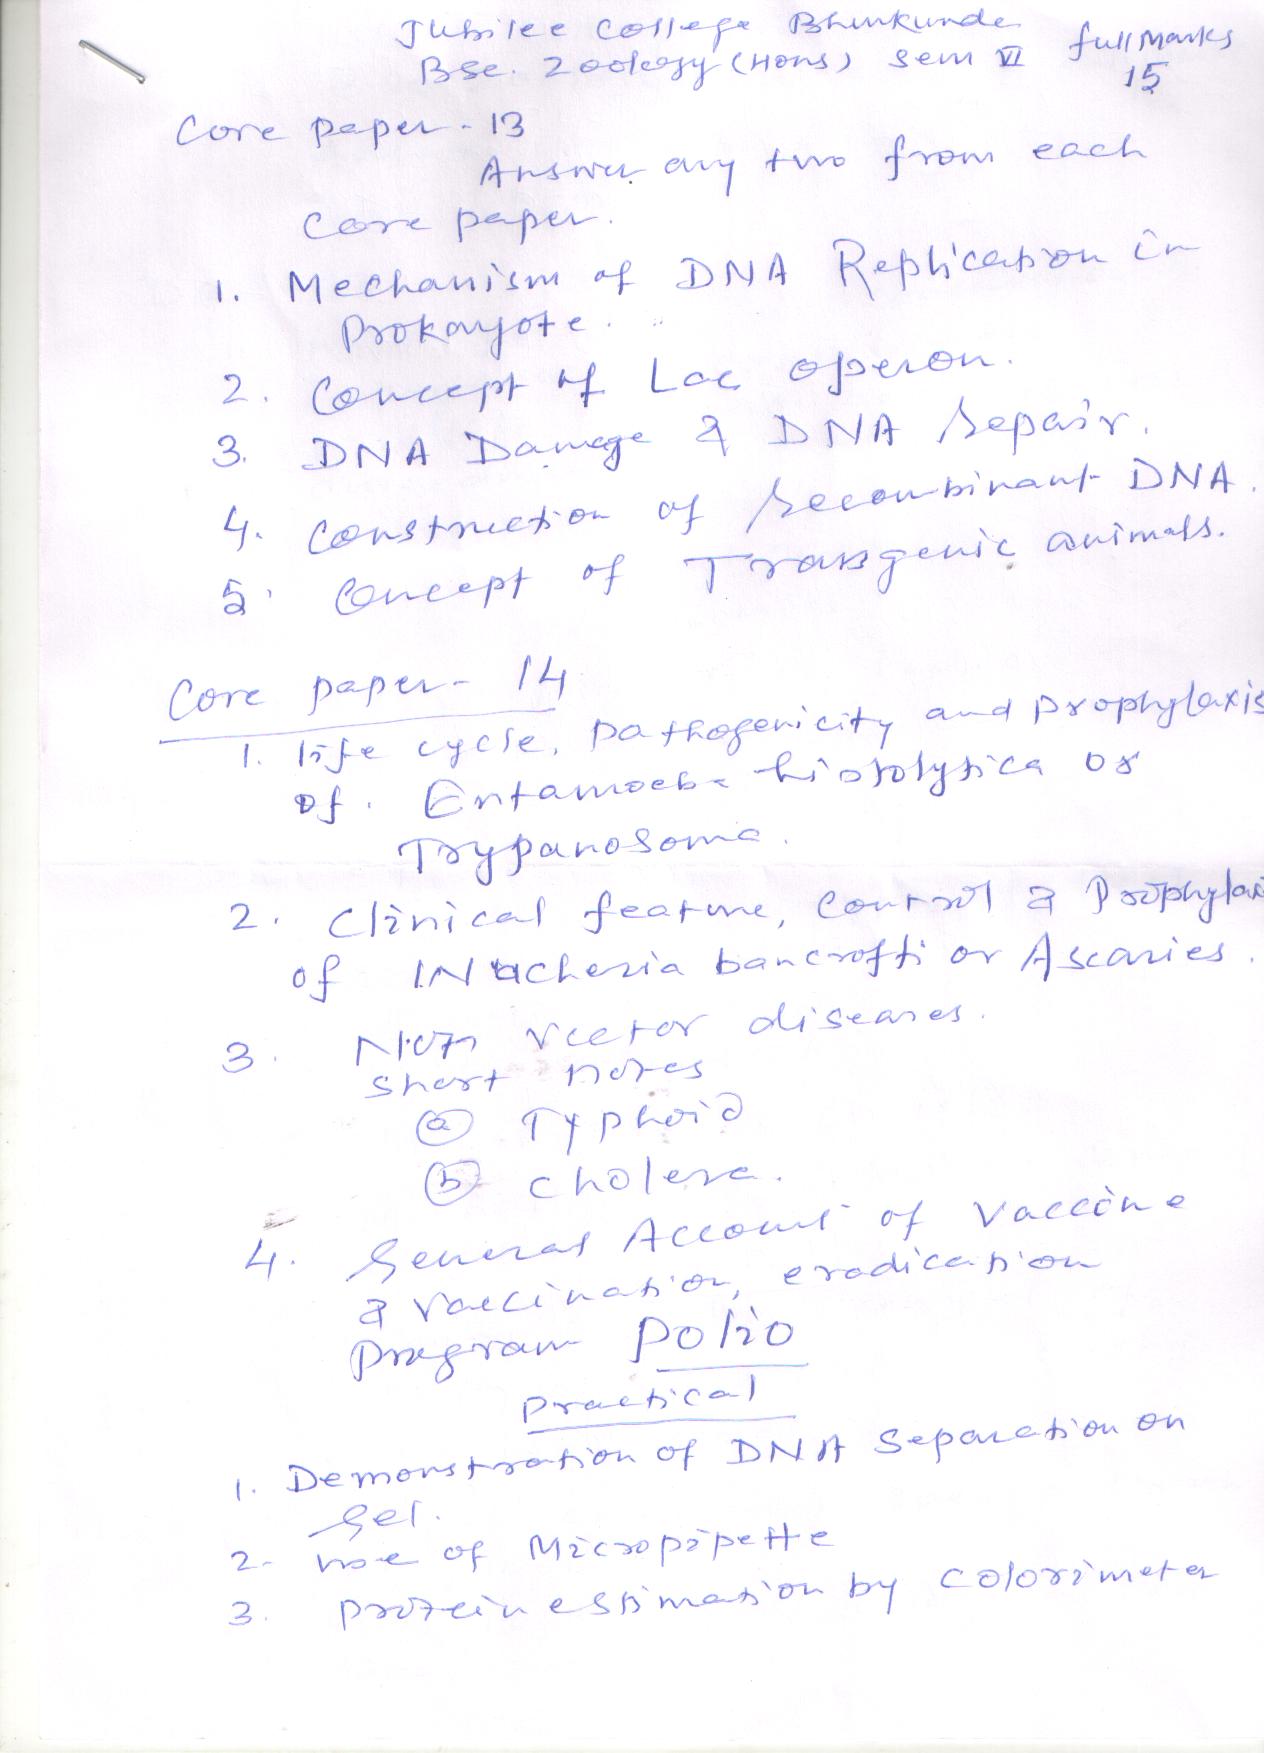 Jubilee College Bhurkunda
BSc. Zoology (Hons) Sem VI full Marks
15
Core paper - 13
Answer any two from each
Core paper.
1. Mechanism of DNA Replication in
Prokaryote.
2. Concept of Lac operon.
3. DNA Damage & DNA repair.
4. Construction of recombinant DNA.
5. Concept of Transgenic animals.
Core paper - 14
1. life cycle, Pathogenicity and Prophylaxis
of. Entamoeba histolytica or
Trypanosoma.
2. Clinical feature, Control & Prophylaxi
of Wucheria bancrofti or Ascaries.
3. Non Vector diseases.
Short notes
(a) Typhoid
(b) Cholera.
4. General Account of Vaccine
& Vaccination, eradication
Program Polio
Practical
1. Demonstration of DNA Separation on
Gel.
2- use of Micropipette
3. Protein estimation by Colorimeter